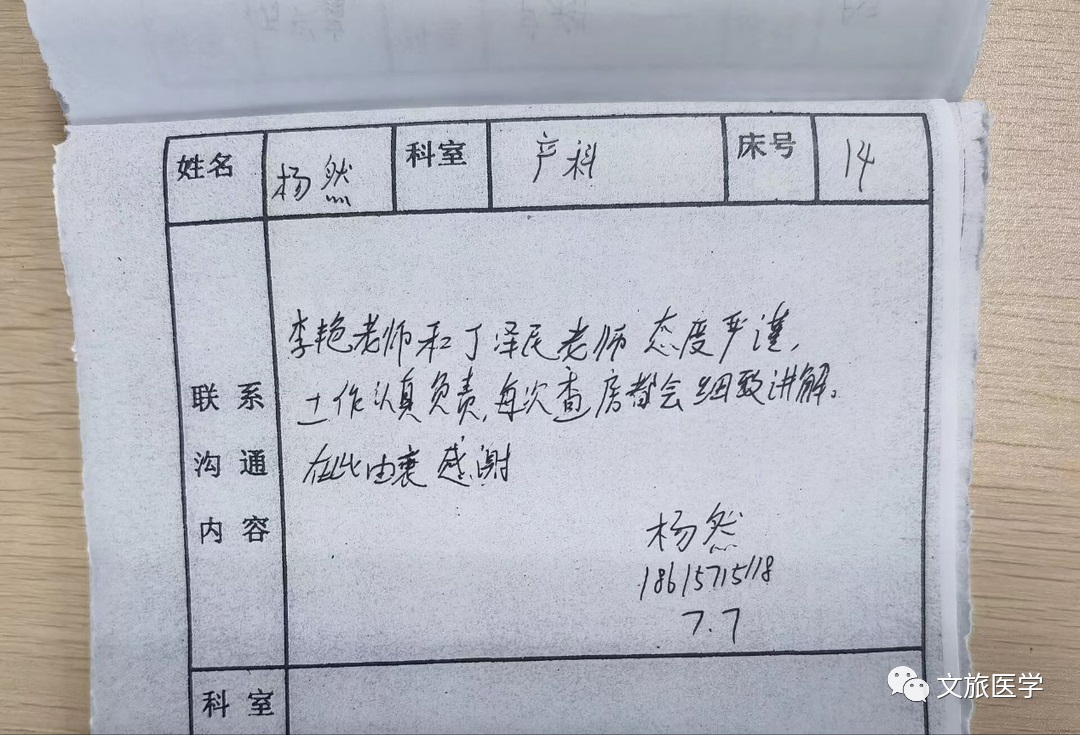 姓名 杨然 科室 产科 床号 14
李艳老师和丁泽民老师态度严谨,
工作认真负责,每次查房都会细致讲解。
在此由衷感谢
联系
沟通
内容
杨然
18615715118
7.7
科室
文旅医学